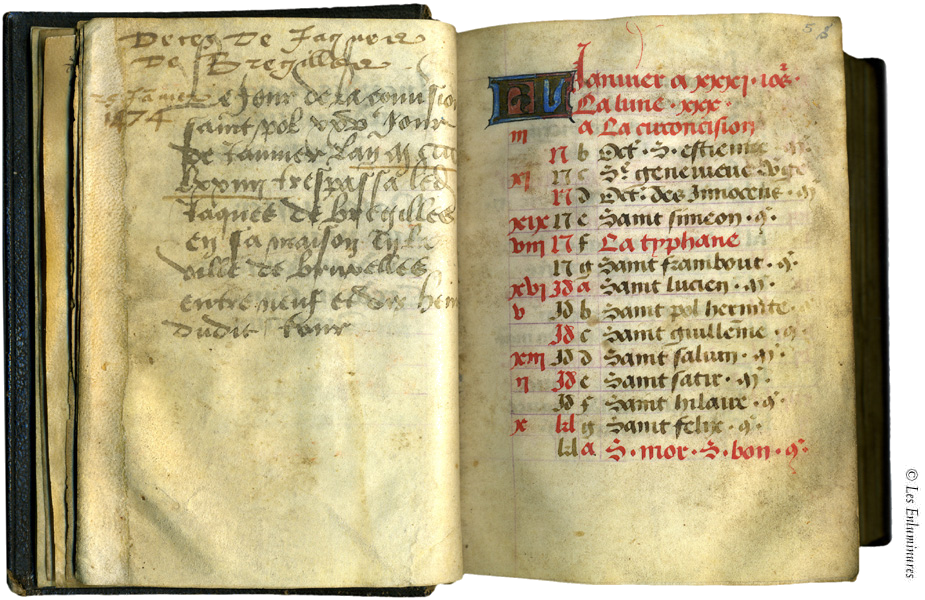 Deces De Jaques
De Bregilles
25 Janvier
1474
Le Jour de la convsion
saint pol xxv Jour
de Janvier Lan M CCCC
Lxxiiii trespassa led
Jaques de bregilles
en sa maison en la
ville de bruxelles
entre neuf et dix heu
dudit Jour
5
KL Januier a xxxi · iors ·
La lune · xxx ·
iii a La circoncision
N b Oct · S · estienne · m
xi N c Ste genevieve vge
N d Oct · des Innocens · m
xix N e Saint simeon · q ·
viii N f La typhane
N g Saint frambout · q ·
xvi Id a Saint lucien · m ·
v Id b Saint pol hermite · q
Id c Saint guilleme · q
xiii Id d Saint salvin · m ·
ii Id e Saint satir · m ·
Id f Saint hilaire · q ·
x kl g Saint felix · q ·
kl a S · mor · S · bon · q ·
© Les Enluminures